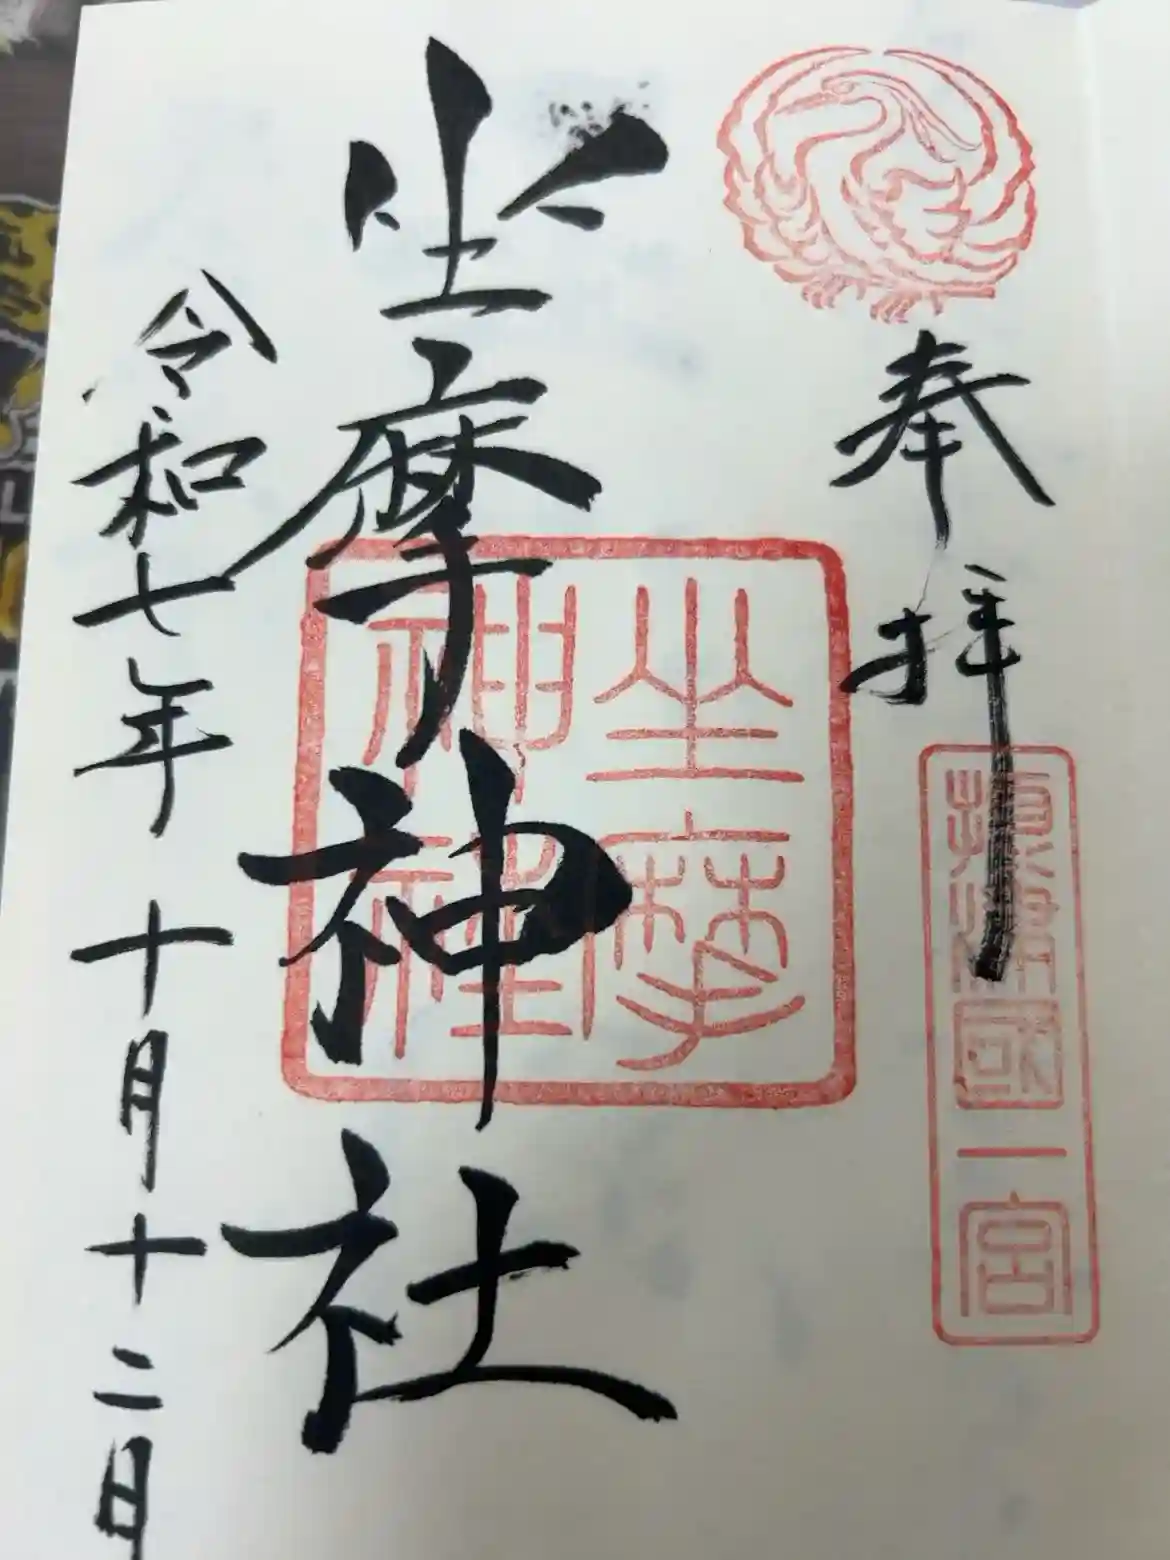 奉拝
攝津國一宮
坐摩神社
坐摩神社
令和七年十月十二日